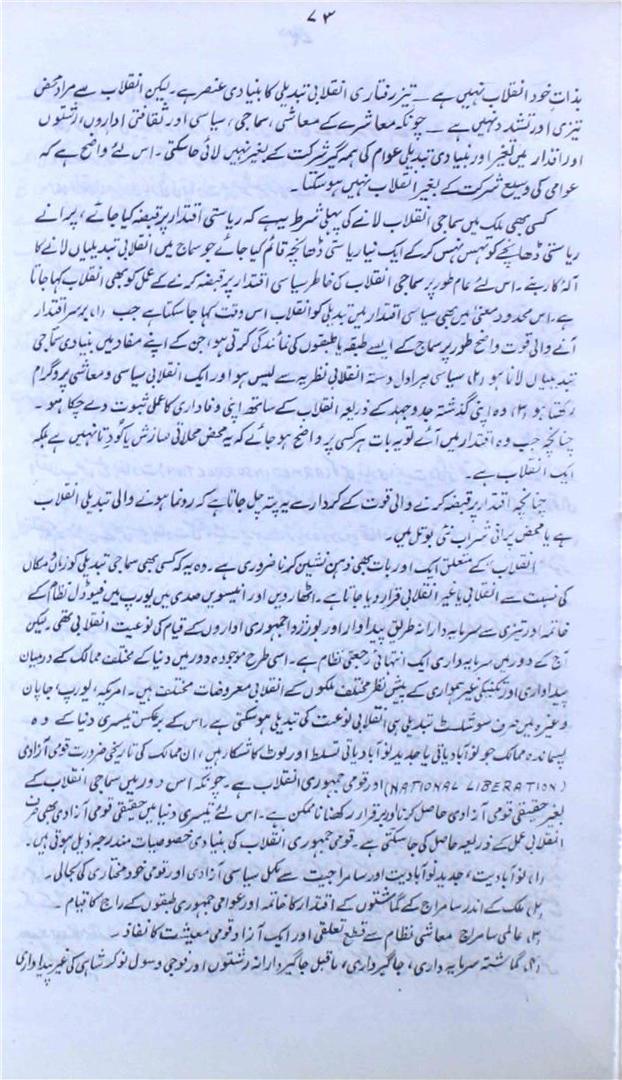 ۷۳
بذاتِ خود انقلاب نہیں ہے ـ تیز رفتاری انقلابی تبدیلی کا بنیادی عنصر ہے۔ لیکن انقلاب سے مراد محض
تیزی اور تشدد نہیں ہے ـ چونکہ معاشرے کے معاشی، سماجی، سیاسی اور ثقافتی اداروں، رشتوں
اور اقدار میں تغیر اور بنیادی تبدیلی عوام کی ہمہ گیر شرکت کے بغیر نہیں لائی جا سکتی۔ اس لئے واضح ہے کہ
عوامی کی وسیع شرکت کے بغیر انقلاب نہیں ہو سکتا۔
کسی بھی ملک میں سماجی انقلاب لانے کی پہلی شرط یہ ہے کہ ریاستی اقتدار پر قبضہ کیا جائے، پرانے
ریاستی ڈھانچے کو تہس نہس کر کے ایک نیا ریاستی ڈھانچہ قائم کیا جائے جو سماج میں انقلابی تبدیلیاں لانے کا
آلۂ کار بنے۔ اس لئے عام طور پر سماجی انقلاب کی خاطر سیاسی اقتدار پر قبضہ کرنے کے عمل کو بھی انقلاب کہا جاتا
ہے۔ اس محدود معنیٰ میں بھی سیاسی اقتدار میں تبدیلی کو انقلاب اس وقت کہا جا سکتا ہے جب (۱) برسر اقتدار
آنے والی قوت واضح طور پر سماج کے ایسے طبقہ یا طبقوں کی نمائندگی کرتی ہو، جن کے اپنے مفاد میں بنیادی سماجی
تبدیلیاں لانا ہو (۲) سیاسی ہراول دستہ انقلابی نظریہ سے لیس ہو اور ایک انقلابی سیاسی و معاشی پروگرام
رکھتا ہو (۳) وہ اپنی گذشتہ جدوجہد کے ذریعہ انقلاب کے ساتھ اپنی وفاداری کا عملی ثبوت دے چکا ہو۔
چنانچہ جب وہ اقتدار میں آئے تو یہ بات ہر کسی پر واضح ہو جائے کہ یہ محض محلاتی سازش یا کُودتا نہیں ہے بلکہ
ایک انقلاب ہے۔
چنانچہ اقتدار پر قبضہ کرنے والی قوت کے کردار سے یہ پتہ چل جاتا ہے کہ رونما ہونے والی تبدیلی انقلاب
ہے یا محض پرانی شراب نئی بوتل میں۔
انقلاب کے متعلق ایک اور بات بھی ذہن نشین کرنا ضروری ہے۔ وہ یہ کہ کسی بھی سماجی تبدیلی کو زمان و مکان
کی نسبت سے انقلابی یا غیر انقلابی قرار دیا جاتا ہے۔ اٹھارویں اور انیسویں صدی میں یورپ میں فیوڈل نظام کے
خاتمہ اور تیزی سے سرمایہ دارانہ طریقِ پیداوار اور بورژوا جمہوری اداروں کے قیام کی نوعیت انقلابی تھی۔ لیکن
آج کے دور میں سرمایہ داری ایک انتہائی رجعتی نظام ہے۔ اسی طرح موجودہ دور میں دنیا کے مختلف ممالک کے درمیان
پیداواری اور تکنیکی غیر ہمواری کے پیشِ نظر مختلف ملکوں کے انقلابی معروضات مختلف ہیں۔ امریکہ، یورپ، جاپان
وغیرہ میں صرف سوشلسٹ تبدیلی ہی انقلابی نوعیت کی تبدیلی ہو سکتی ہے۔ اس کے برعکس تیسری دنیا کے وہ
پسماندہ ممالک جو نوآبادیاتی یا جدید نوآبادیاتی تسلط اور لوٹ کا شکار ہیں، ان ممالک کی تاریخی ضرورت قومی آزادی
(NATIONAL LIBERATION) اور قومی جمہوری انقلاب ہے۔ چونکہ اس دور میں سماجی انقلاب کے
بغیر حقیقی قومی آزادی حاصل کرنا اور برقرار رکھنا ناممکن ہے۔ اس لئے تیسری دنیا میں حقیقی قومی آزادی بھی صرف
انقلابی عمل کے ذریعہ حاصل کی جا سکتی ہے۔ قومی جمہوری انقلاب کی بنیادی خصوصیات مندرجہ ذیل ہوتی ہیں۔
(۱) نوآبادیت، جدید نوآبادیت اور سامراجیت سے مکمل سیاسی آزادی اور قومی خود مختاری کی بحالی۔
(۲) ملک کے اندر سامراج کے گماشتوں کے اقتدار کا خاتمہ اور عوامی جمہوری طبقوں کے راج کا قیام۔
(۳) عالمی سامراج معاشی نظام سے قطع تعلقی اور ایک آزاد قومی معیشت کا نفاذ۔
(۴) گماشتہ سرمایہ داری، جاگیرداری، ماقبل جاگیردارانہ رشتوں اور فوجی و سول نوکر شاہی کی غیر پیداواری